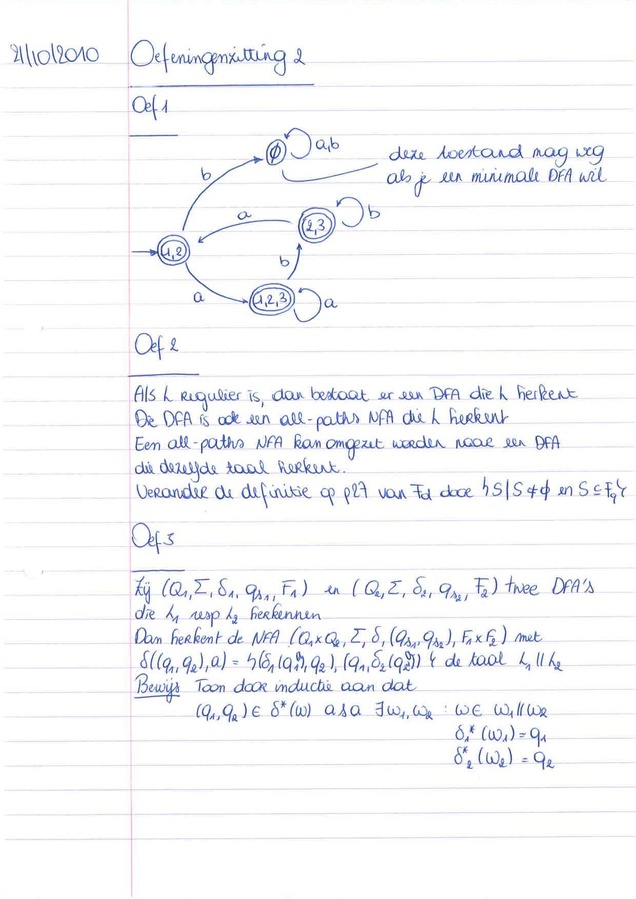 21/10/2010 Oefeningenzitting 2
Oef 1
∅ a,b
deze toestand mag weg
als je een minimale DFA wil
b
a
2,3 b
1,2
b
a
1,2,3 a
Oef 2
Als L regulier is, dan bestaat er een DFA die L herkent
Die DFA is ook een all-paths NFA die L herkent
Een all-paths NFA kan omgezet worden naar een DFA
die dezelfde taal herkent.
Verander de definitie op p27 van Fd door {S | S ≠ ∅ en S ⊆ Fq}
Oef 3
Zij (Q1, Σ, δ1, qs1, F1) en (Q2, Σ, δ2, qs2, F2) twee DFA's
die L1 resp L2 herkennen
Dan herkent de NFA (Q1×Q2, Σ, δ, (qs1, qs2), F1×F2) met
δ((q1, q2), a) = {(δ1(q1,a), q2), (q1, δ2(q2,a))} de taal L1 || L2
Bewijs Toon door inductie aan dat
(q1, q2) ∈ δ*(w) asa ∃w1, w2 : w ∈ w1 || w2
δ1*(w1) = q1
δ2*(w2) = q2